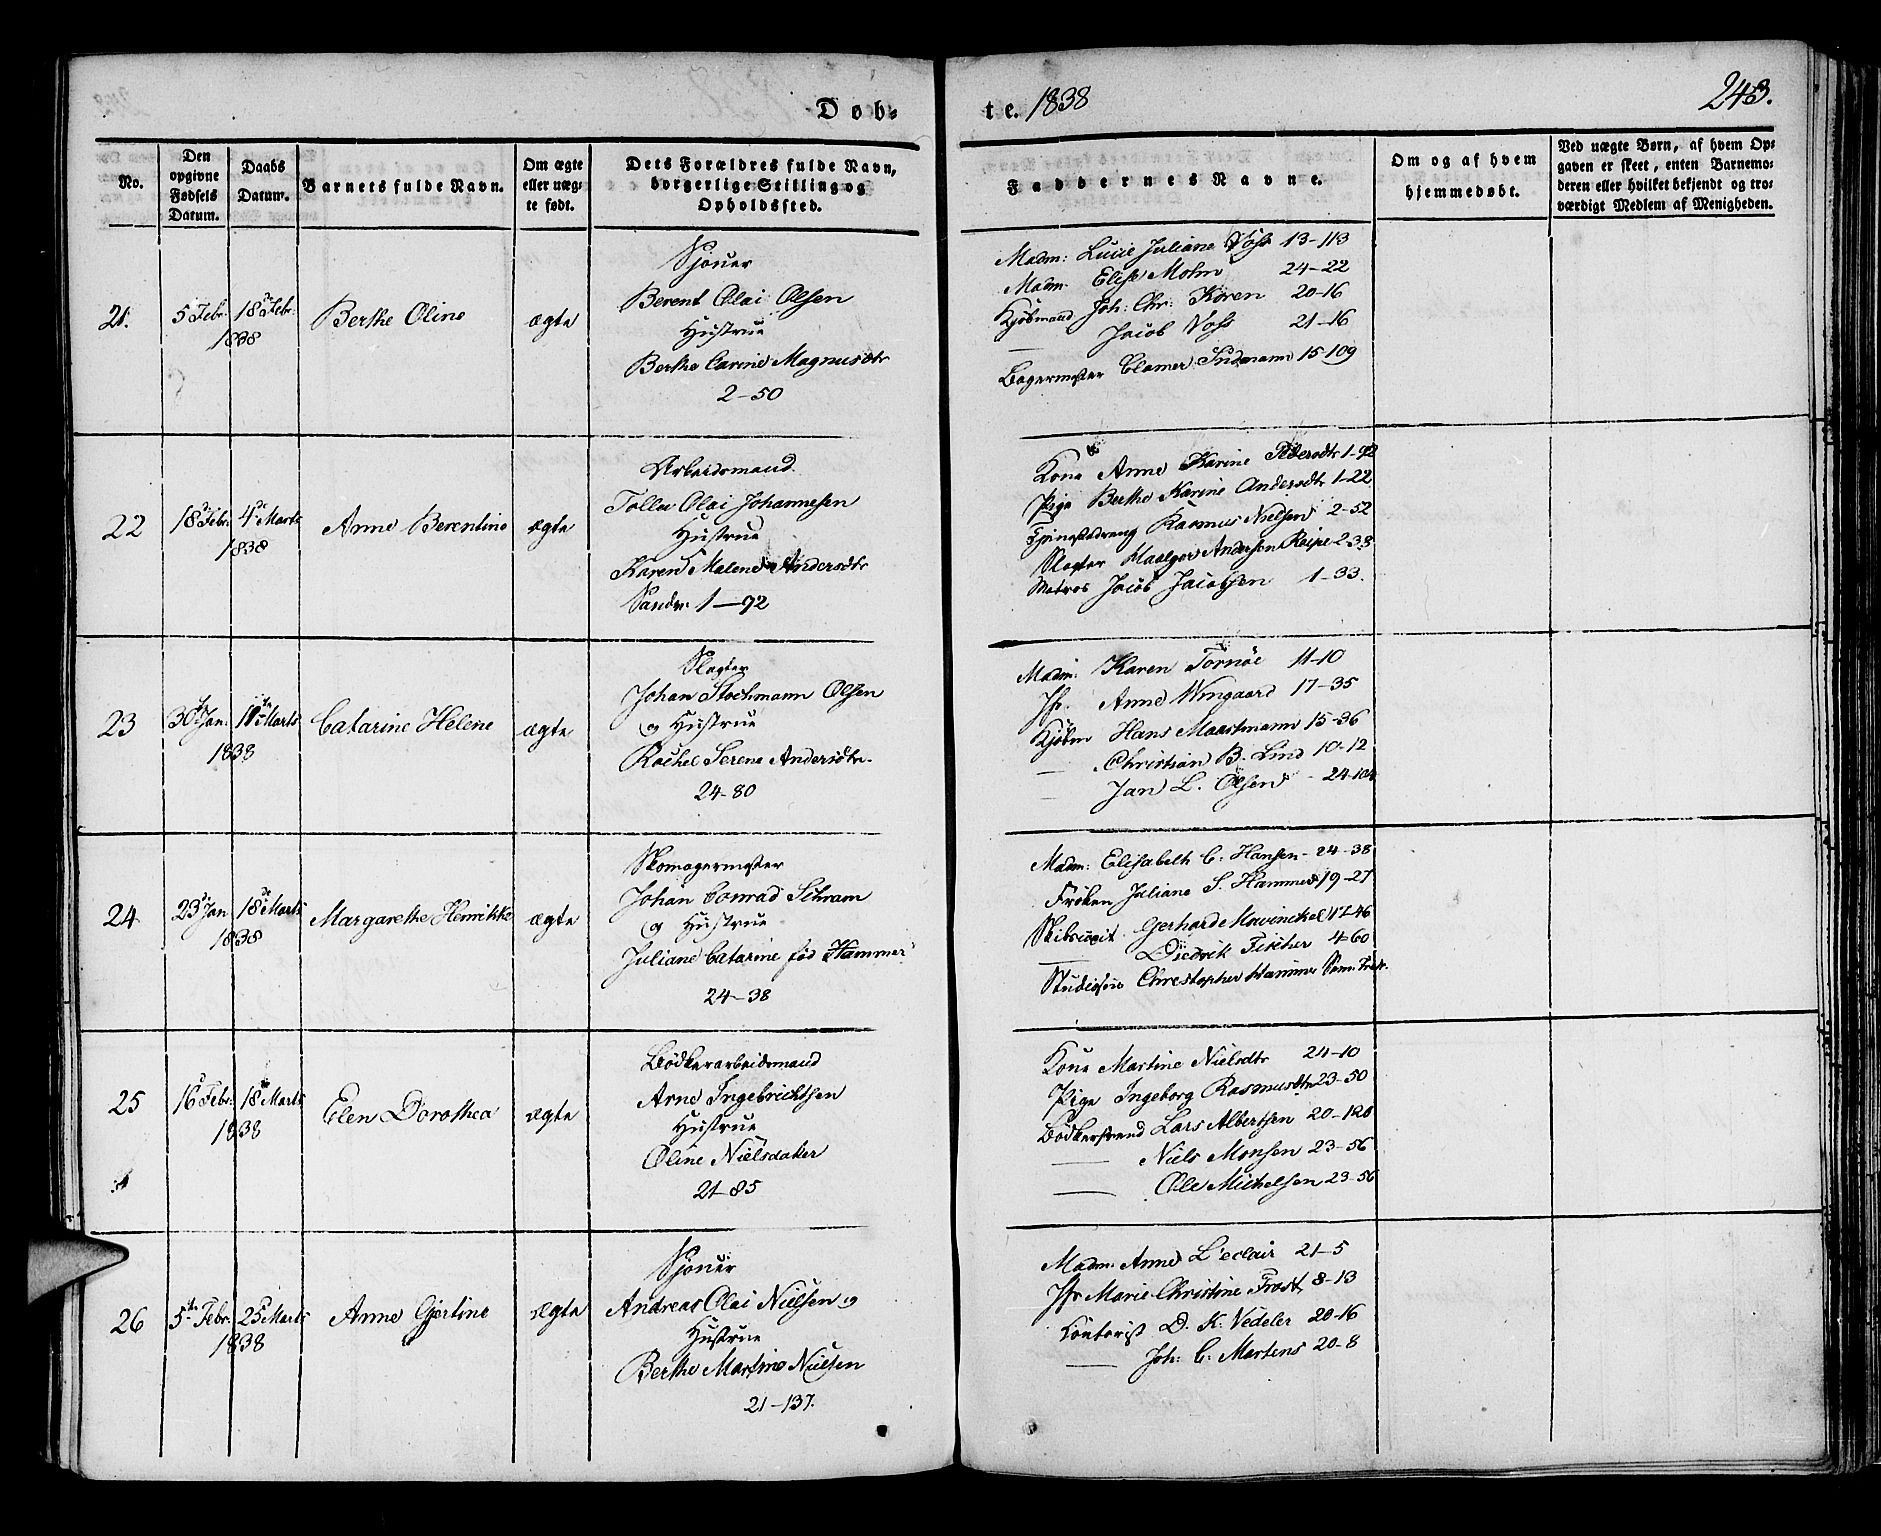 Døb-
te. 1838
243.
No.
Den opgivne Fødsels Datum.
Daabs Datum.
Barnets fulde Navn.
Om ægte eller uægte født.
Dets Forældres fulde Navn, borgerlige Stilling og Opholdssted.
Faddernes Navne.
Om og af hvem hjemmedøbt.
Ved uægte Børn, af hvem Opgaven er skeet, enten Barnemoderen eller hvilket bekjendt og troværdigt Medlem af Menigheden.
21.
5 Febr. 18de Febr.
1838
Berthe Oline
ægte
Sjouer
Berent Olai Olsen
Hustrue
Berthe Carine Magnusdtr
2-50
Madm: Lucie Juliane Voss 13-113
Madm. Elise Mohn 24-22
Kjøbmand Joh: Chr: Koren 20-16
— Jacob Voss 21-16
Bagermester Clamer Sudmann 15-109
22
18de Febr. 4de Marts
1838
Anne Berentine
ægte
Arbeidsmand
Tollev Olai Johannesen
Hustrue
Karen Malene Andersdtr
Sandv. 1-92
Kone Anne Karine Pedersdtr 1-92
Pige Berthe Karine Andersdtr 1-22
Tjenestedreng Rasmus Nielsen 2-52
Slagter Andersen 2-33
Matros Jacob Jacobsen 1-33.
23
30te Jan. 11te Marts
1838
Catarine Helene
ægte
Slagter
Johan Stochmann Olsen
og Hustrue
Rachel Serene Andersdtr.
24-80
Madm: Karen Tornöe 11-10
Jfr. Anne Wingaard 17-35
Kjøbm Hans Maartmann 15-36
— Christian B. Lind 10-12
— Jan L. Olsen - 24-104
24
23de Jan 18de Marts
1838
Margarethe Henrikke
ægte
Skomagermester
Johan Conrad Schram
og Hustrue
Juliane Catarine fød Hammer
24-38
Madm: Elisabeth C. Hansen - 24-38
Frøken Juliane S. Hammer 19-27
Gerhard Mowinckel 17-46
— Diedrik Fischer 4-60
Studiosus Christopher Hammer
25
16de Febr. 18de Marts
1838
Elen Dorothea
ægte
Bødkerarbeidsmand
Arne Ingebrichtsen
Hustrue
Oline Nielsdatter
21-85
Kone Martine Nielsdtr 24-10
Pige Ingeborg Rasmusdtr 23-50
Bødkersvend Lars Albertsen 20-120
— Niels Monsen 23-56
— Ole Michelsen 23-56
26
5te Febr. 25de Marts
1838
Anne Gjertine
Ægte
Sjouer
Andreas Olai Nielsen og
Hustrue
Berthe Martine Nielsen
21-137.
Madm. Anne L'eclair 21-5
Jfr Marie Christine Frost 8-13
Kontorist D. K. Vedeler 20-16
— Joh: C. Martens 20-8